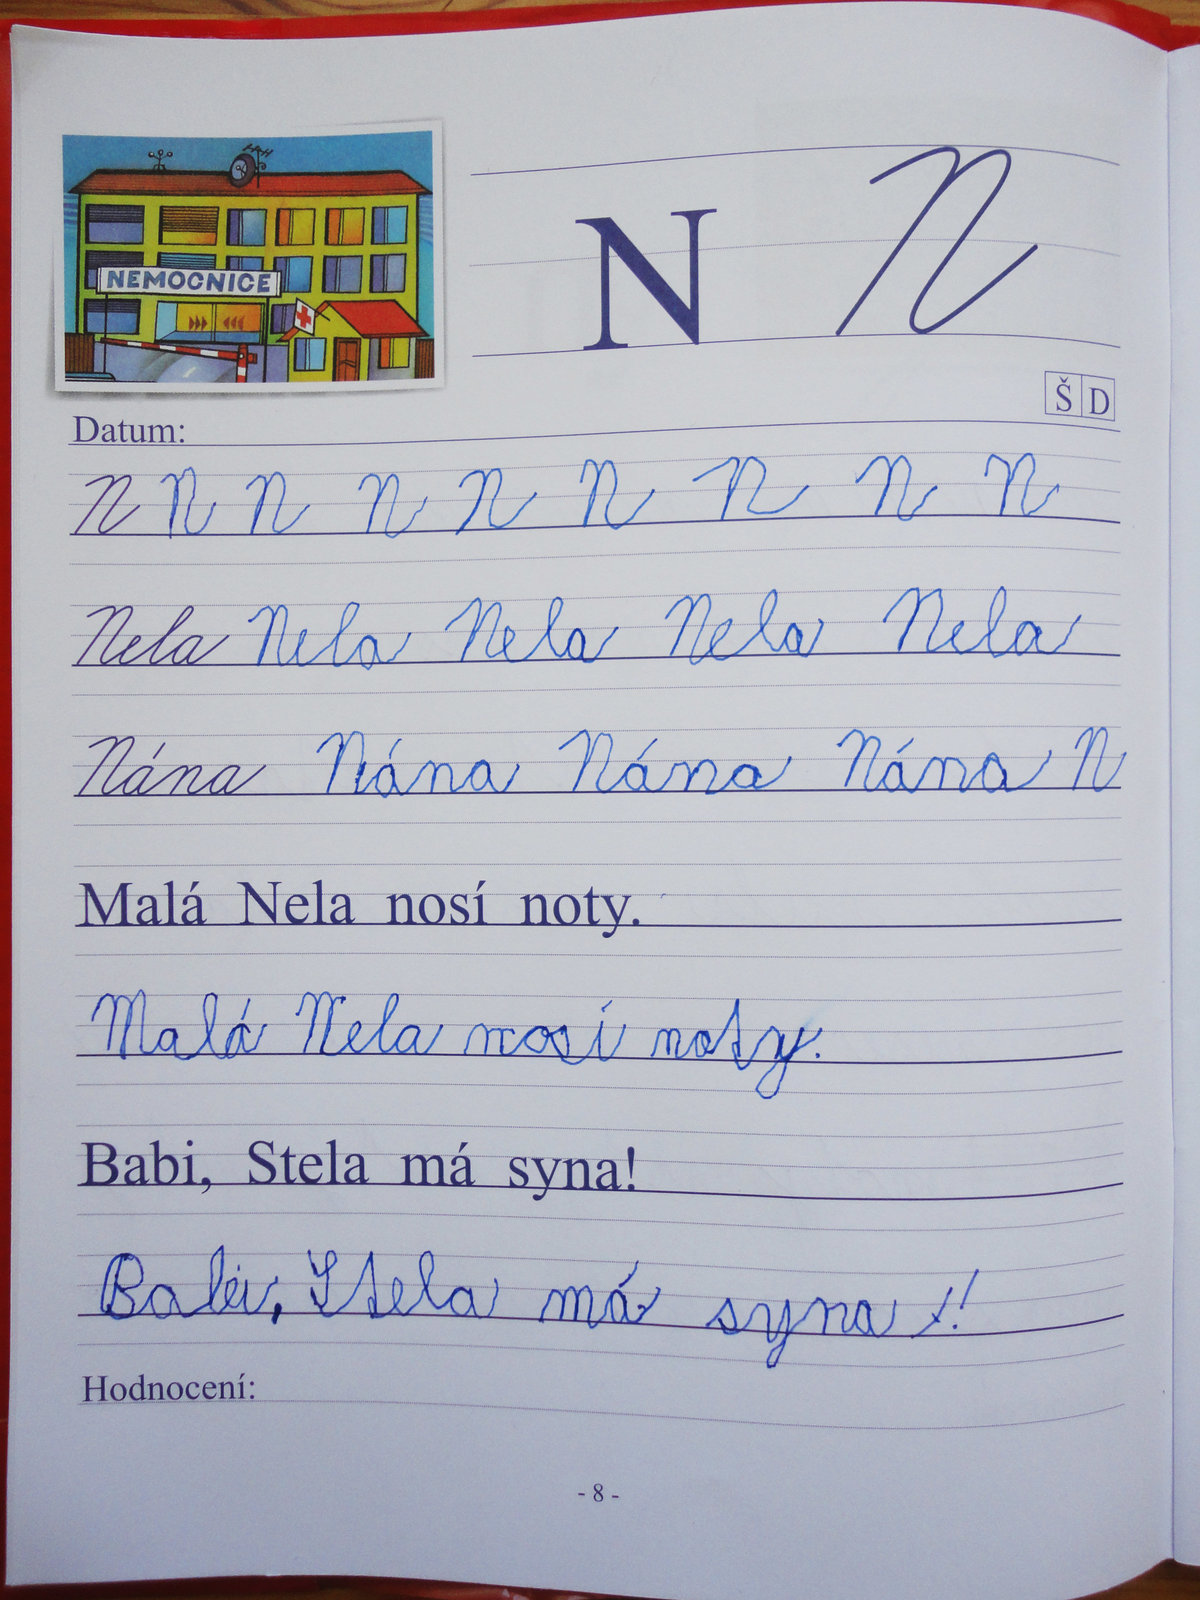 NEMOCNICE
N N
Š D
Datum:
N N N N N N N N N
Nela Nela Nela Nela Nela
Nána Nána Nána Nána N
Malá Nela nosí noty.
Malá Nela nosí noty.
Babi, Stela má syna!
Babi, Stela má syna !
Hodnocení:
- 8 -